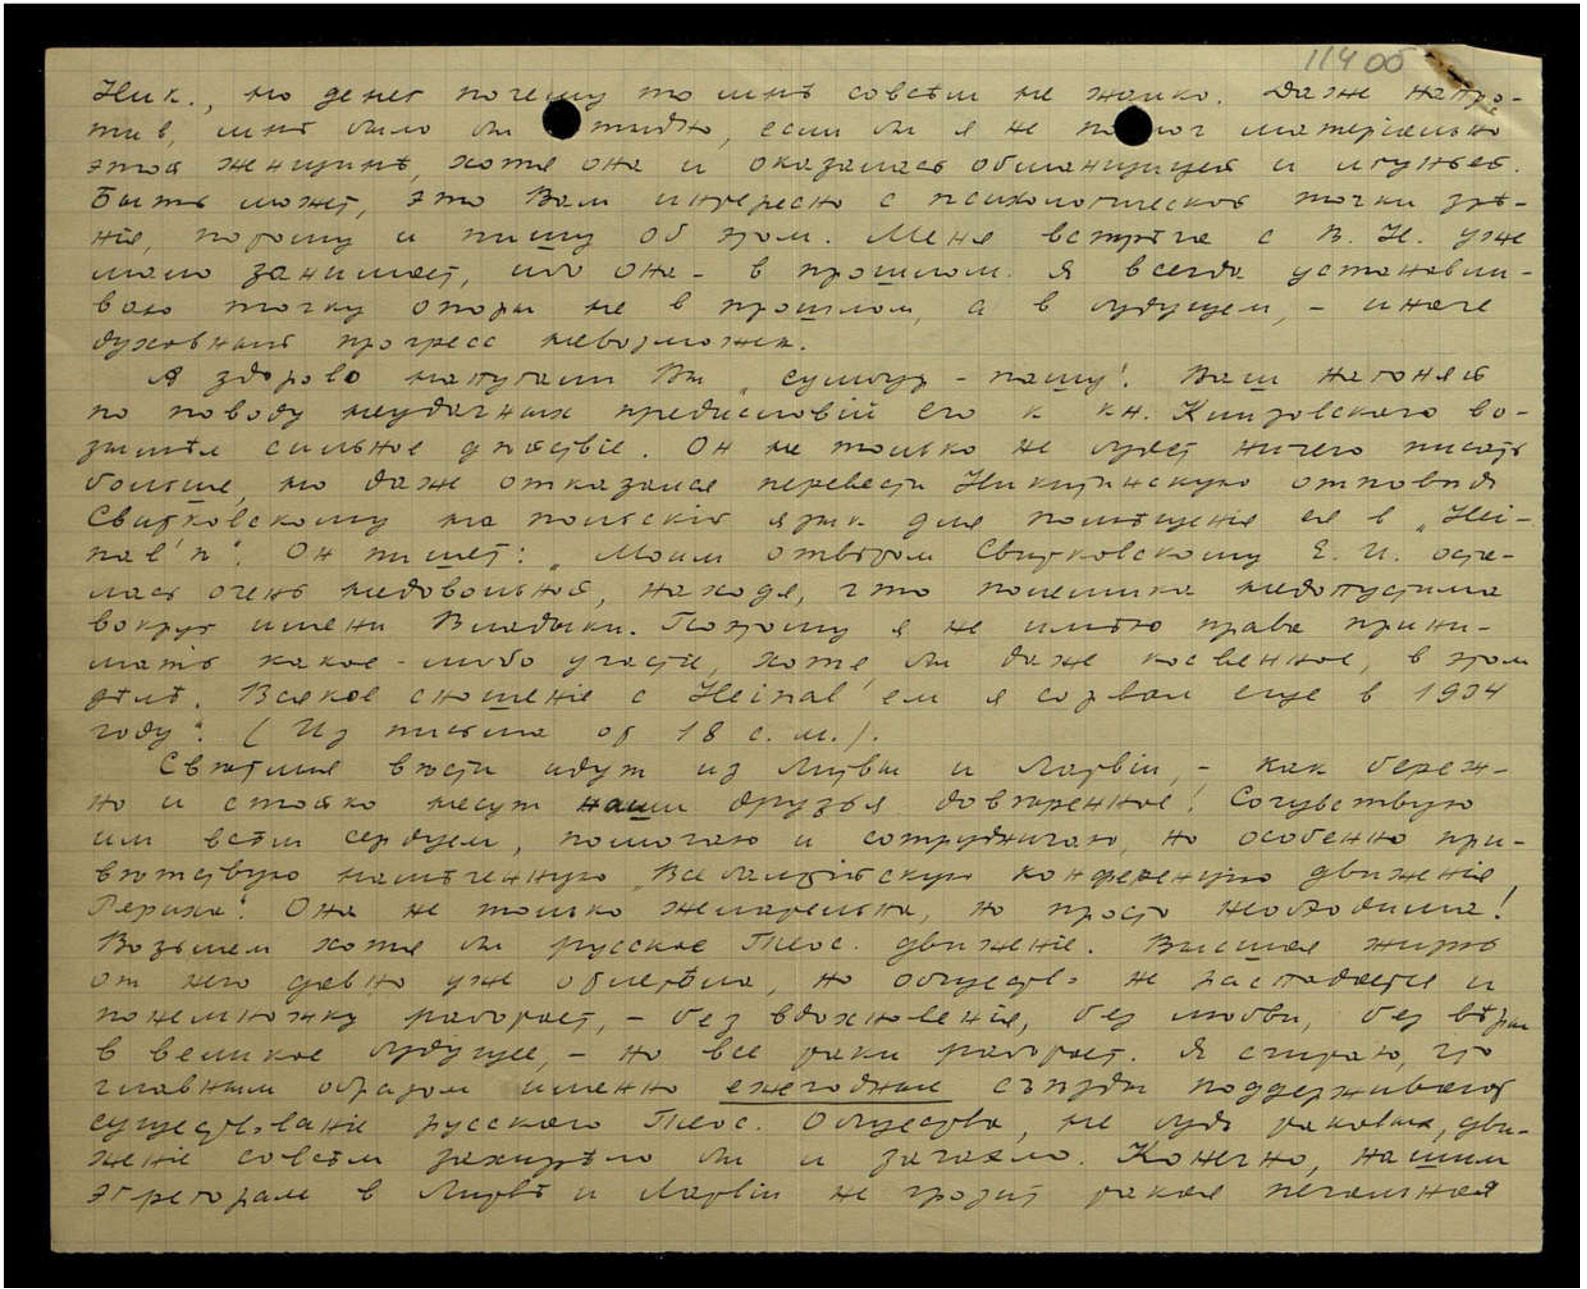 114 об
Ник., но денег почему то мнѣ совсѣм не жалко. Даже напро-
тив, мнѣ было бы стыдно, если бы я не помог матеріально
этой женщинѣ, хотя она и оказалась обманщицей и лгуньей.
Быть может, это Вам интересно с психологической точки зрѣ-
нія, потому и пишу об этом. Меня встрѣча с В. Н. уже
мало занимает, ибо она - в прошлом. Я всегда устанавли-
ваю точку опоры не в прошлом, а в будущем, - иначе
духовный прогресс невозможен.
А здорово напугали Вы „сумбур-пашу“! Ваш нагоняй
по поводу неудачных предисловій его к кн. Клизовского во-
зымѣл сильное дѣйствіе. Он не только не будет ничего писать
больше, но даже отказался перевести Никитинскую отповѣдь
Свитковскому на польскій язык для помѣщенія ея в „Hej-
nal'ѣ“. Он пишет: „Моим отвѣтом Свитковскому Е. И. оста-
лась очень недовольной, находя, что полемика недопустима
вокруг имени Владыки. Поэтому я не имѣю права прини-
мать какое-либо участіе, хотя бы даже косвенное, в этом
дѣлѣ. Всякое сношеніе с Heinal'ем я сорвал еще в 1934
году“. (Из письма от 18 с. м.).
Свѣтлыя вѣсти идут из Литвы и Латвіи, - как береж-
но и стойко несут наши друзья довѣренное! Сочувствую
им всѣм сердцем, помогаю и сотрудничаю, но особенно при-
вѣтствую намѣченную „Всебалтійскую конференцію движенія
Рериха“. Она не только желательна, но просто необходима!
Возьмем хотя бы русское Теос. движеніе. Высшая жизнь
от него давно уже отлетѣла, но общество не распадается и
понемножку работает, - без вдохновенія, без любви, без вѣры
в великое будущее, - но все таки работает. Я считаю, что
главным образом именно ежегодные съѣзды поддерживают
существованіе русского Теос. Общества, не будь таковых, дви-
женіе совсѣм захирѣло бы и зачахло. Конечно, нашим
эгрегорам в Литвѣ и Латвіи не грозит такая печальная